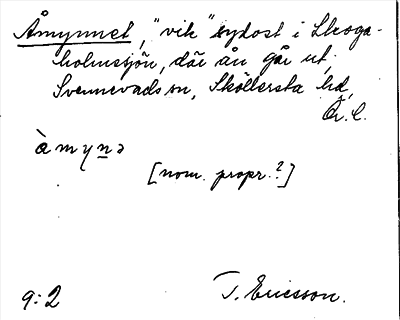 Åmynnet, "vik" sydost i Skoga-
holmssjön, där ån går ut,
Svennevads sn, Sköllersta hd,
Ör. l.
àmyṉə
[nom. propr.?]
9:2 T. Ericsson.